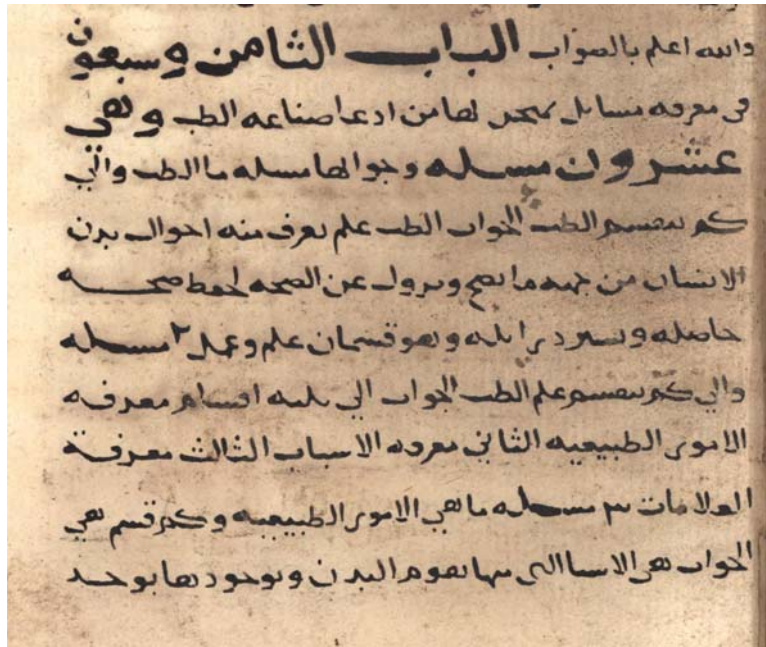 والله اعلم بالصواب الباب الثامن وسبعون
في معرفه مسايل يمتحن بها من ادعا صناعه الطب وهي
عشرون مسله وجوابها مسله ما الطب والي
كم ينقسم الطب الجواب الطب علم يعرف منه احوال بدن
الانسان من جهه ما يصح ويزول عن الصحه لحفظ صحه
حاصله وتسترد زايله وهو قسمان علم وعمل ٢ مسله
والي كم ينقسم علم الطب الجواب الي ثلثه اقسام معرفه
الامور الطبيعيه الثاني معرفه الاسباب الثالث معرفة
العلامات ٣ مسله ما هي الامور الطبيعيه وكم قسم هي
الجواب هي الاسيا التي بها يقوم البدن وبوجودها يوجد